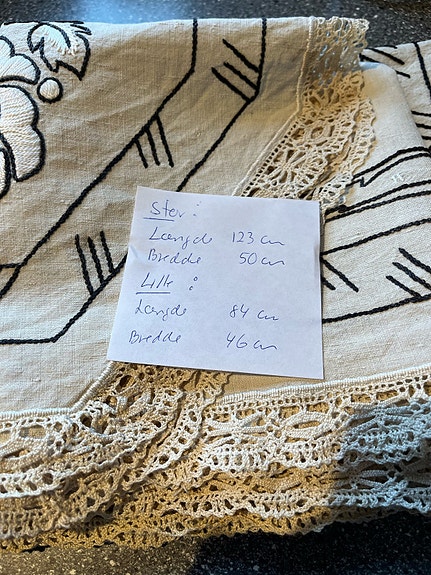 Stor:
Længde 123 cm
Bredde 50 cm
Lille:
Længde 84 cm
Bredde 46 cm